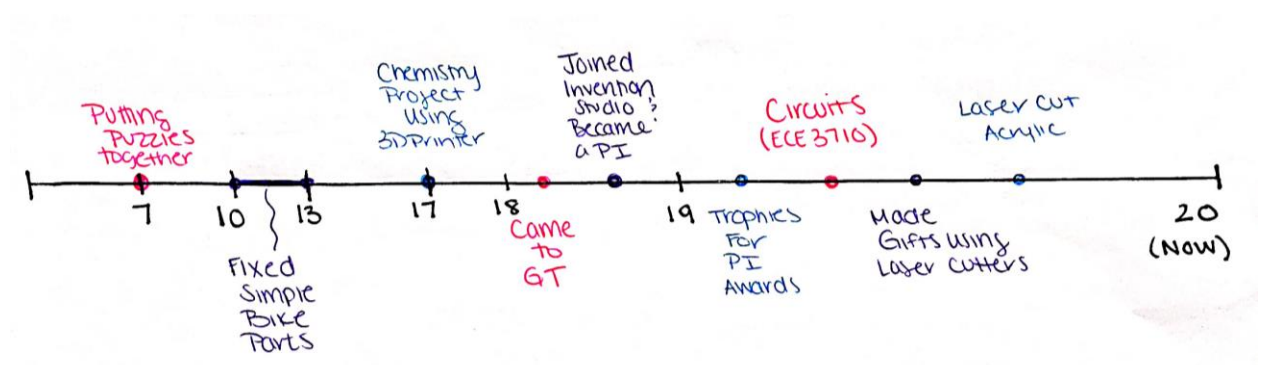 Putting
Puzzles
together
7
10
13
Fixed
Simple
Bike
Parts
Chemistry
Project
using
3D Printer
17
18
Came
to
GT
Joined
Invention
Studio &
Became
a PI
19
Trophies
For
PI
Awards
Circuits
(ECE3710)
Made
Gifts using
Laser Cutters
Laser cut
Acrylic
20
(NOW)